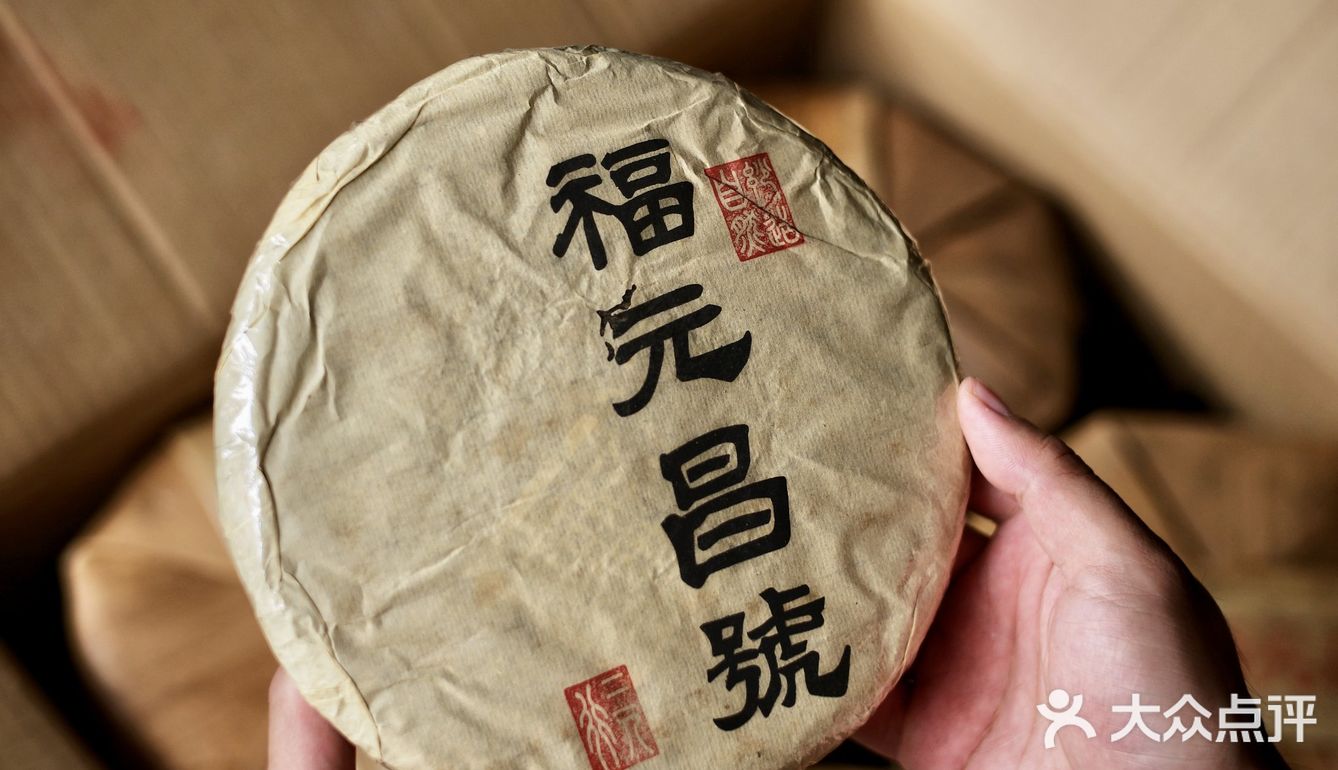 福元昌號
大众点评